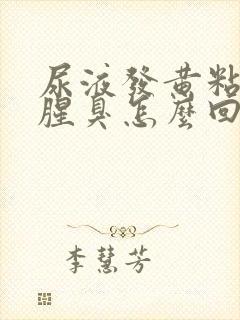 尿液發黄粘
腥臭怎麼回
李慧芳